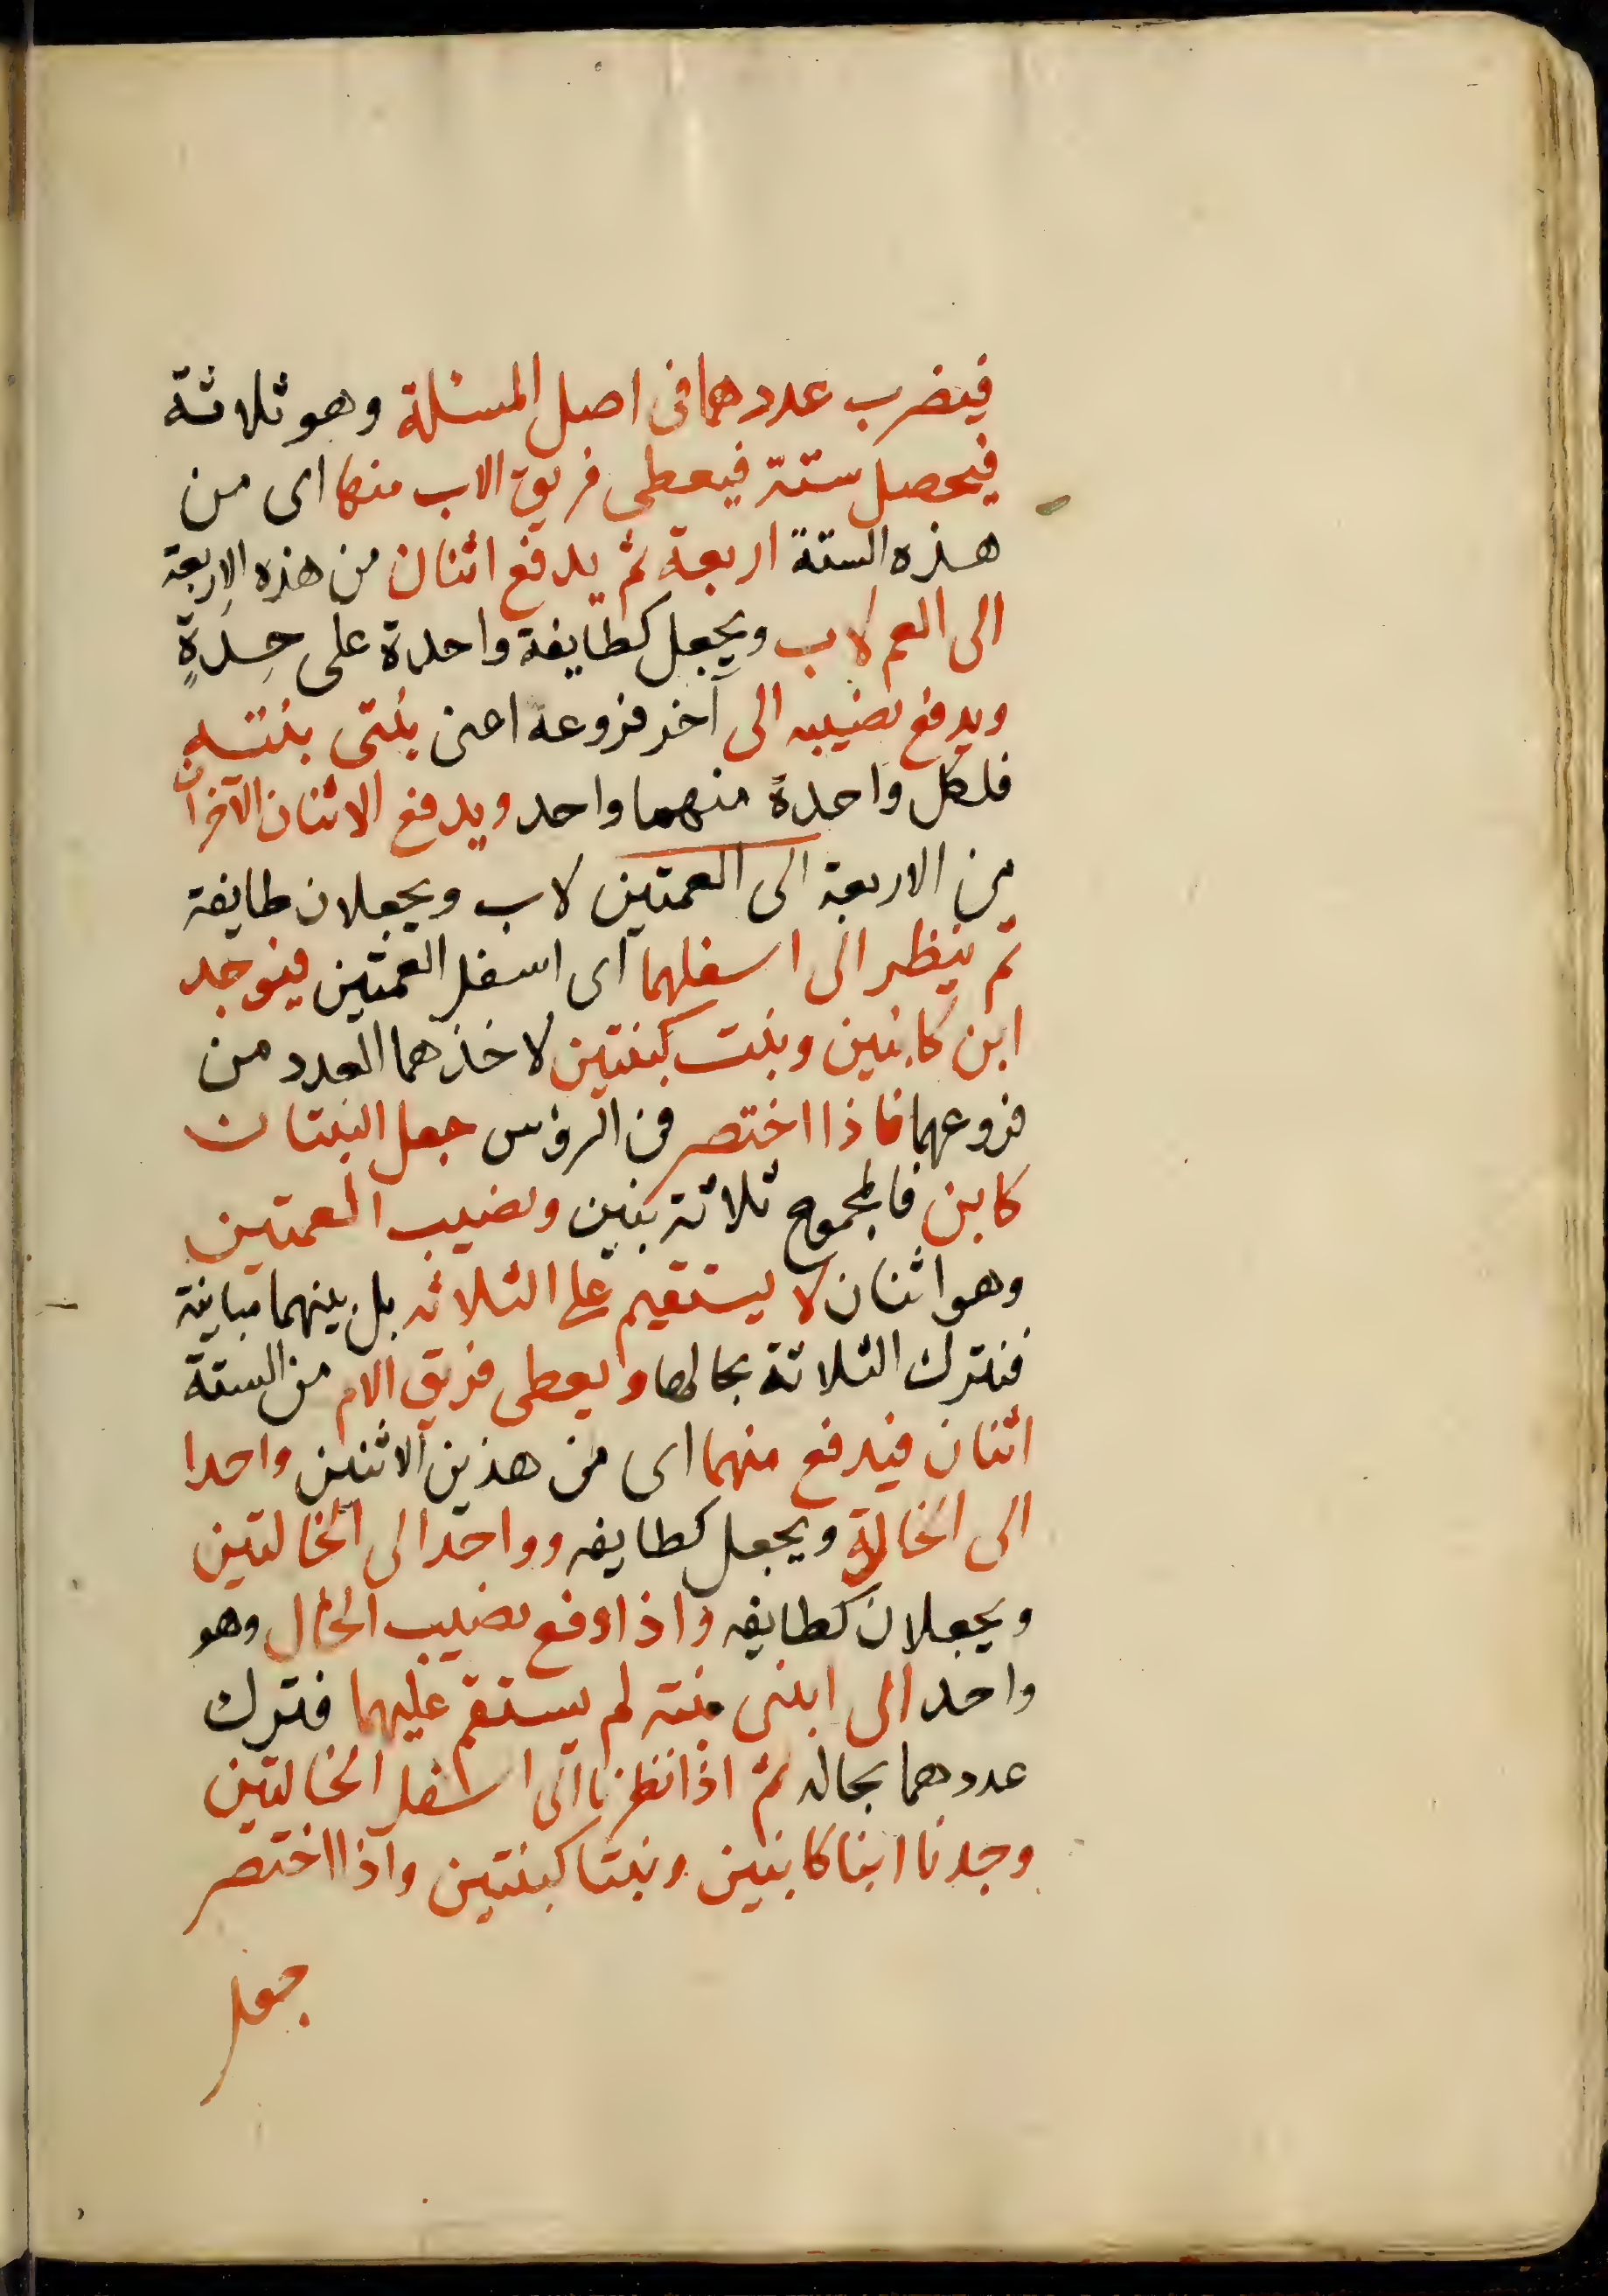 فيضرب عددهما فى اصل المسئلة وهو ثلاثة
فيحصل ستة فيعطى فريق الاب منها اى من
هذه الستة اربعة ثم يدفع اثنان من هذه الاربعة
الى العم لاب ويجعل كطايفة واحدة على حِدَةٍ
ويدفع نصيبه الى آخر فروعه اعنى بنتى بنته
فلكل واحدة منهما واحد ويدفع الاثنان الآخران
من الاربعة الى العمتين لاب ويجعلان طايفة
ثم ينظر الى اسفلهما اى اسفل العمتين فيوجد
ابن كابنين وبنت كبنتين لاخذهما العدد من
فروعهما فاذا اختصر فى الرؤس جعل البنتان
كابن فالمجموع ثلاثة بنين ونصيب العمتين
وهو اثنان لا يستقيم على الثلاثه بل بينهما مباينة
فتترك الثلاثة بحالها ويعطى فريق الام من الستة
اثنان فيدفع منهما اى من هذين الاثنين واحدا
الى الخالة ويجعل كطايفه وواحد الى الخالتين
ويجعلان كطايفه واذا دفع نصيب الخال وهو
واحد الى ابنى بنته لم يستقم عليهما فترك
عددهما بحاله ثم اذا نظرنا الى اسفل الخالتين
وجدنا ابنا كابنين وبنتا كبنتين واذا اختصر
جعل